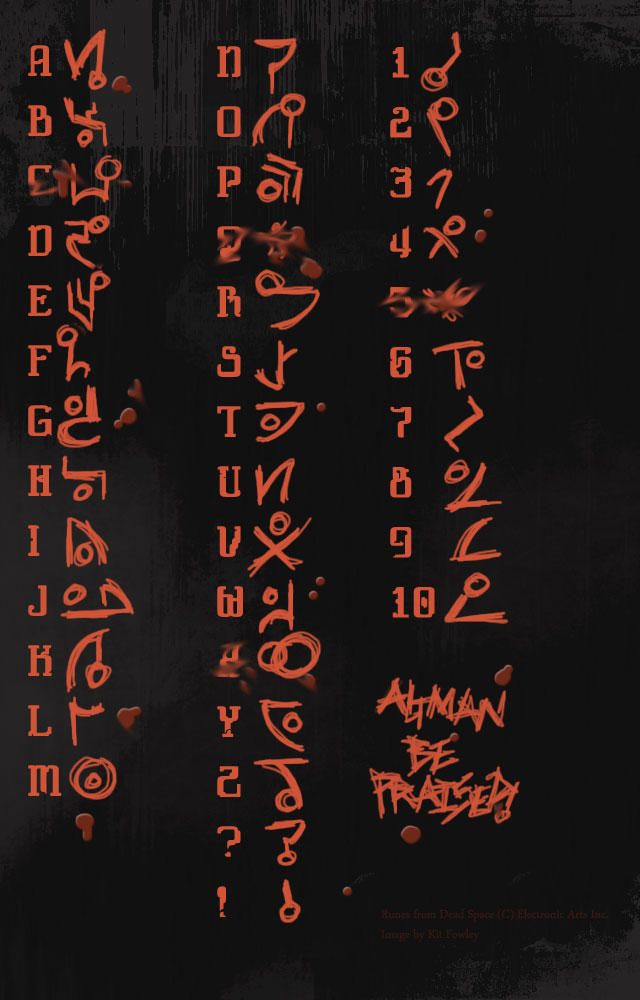 A
B
C
D
E
F
G
H
I
J
K
L
M
N
O
P
R
S
T
U
V
W
Y
Z
?
!
1
2
3
4
5
6
7
8
9
10
ALTMAN
BE
PRAISED!
Runes from Dead Space (C) Electronic Arts Inc.
Image by Kit Fowley